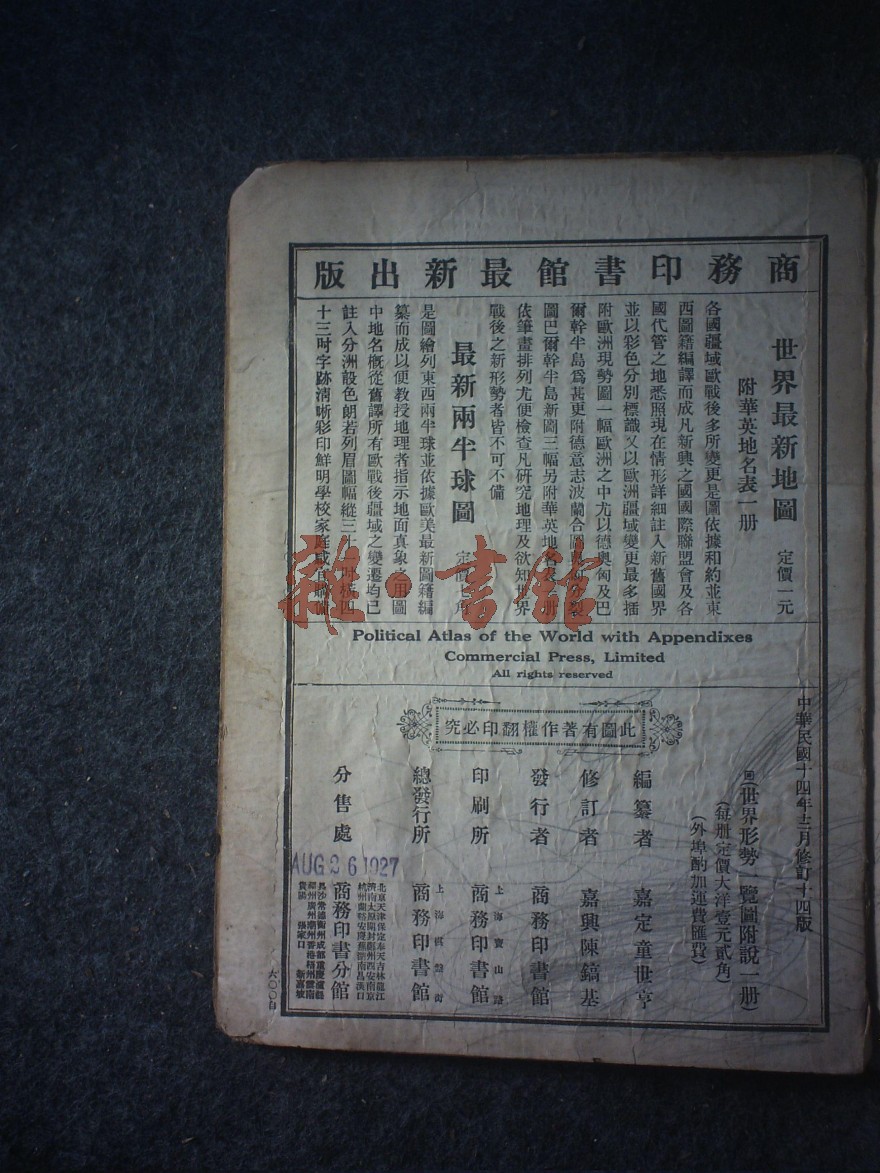 商務印書館最新出版
世界最新地圖 定價一元
附華英地名表一册
各國疆域歐戰後多所變更是圖依據和約並東
西圖籍編譯而成凡新興之國國際聯盟會及各
國代管之地悉照現在情形詳細註入新舊國界
並以彩色分別標識又以歐洲疆域變更最多插
附歐洲現勢圖一幅歐洲之中尤以德奧匈及巴
爾幹半島爲甚更附德意志波蘭合圖
圖巴爾幹半島新圖三幅另附華英地名表一册
依筆畫排列尤便檢查凡研究地理及欲知世界
戰後之新形勢者皆不可不備
最新兩半球圖 定價七角
是圖繪列東西兩半球並依據歐美最新圖籍編
纂而成以便教授地理者指示地面真象之用圖
中地名槪從舊譯所有歐戰後疆域之變遷均已
註入分洲設色朗若列眉圖幅縱三十
十三吋字跡清晰彩印鮮明學校家庭咸宜
雜·書館
Political Atlas of the World with Appendixes
Commercial Press, Limited
All rights reserved
中華民國十四年十二月修訂十四版
此圖有著作權翻印必究
世界形勢一覽圖附說一册
(每册定價大洋壹元貳角)
(外埠酌加運費匯費)
編纂者 嘉定童世亨
修訂者 嘉興陳鎬基
發行者 商務印書館
印刷所 上海寶山路 商務印書館
總發行所 上海棋盤街 商務印書館
分售處 商務印書分館
北京天津保定奉天吉林龍江
濟南太原開封鄭州西安南京
杭州蘭谿安慶蕪湖南昌漢口
AUG 26 1927